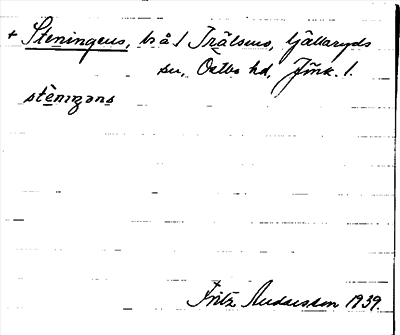 + Steningens, bså l Trälsens, Gällaryds
sn, Östbo hd, Jmk. l.
stèningəns
Fritz Andersson 1939.